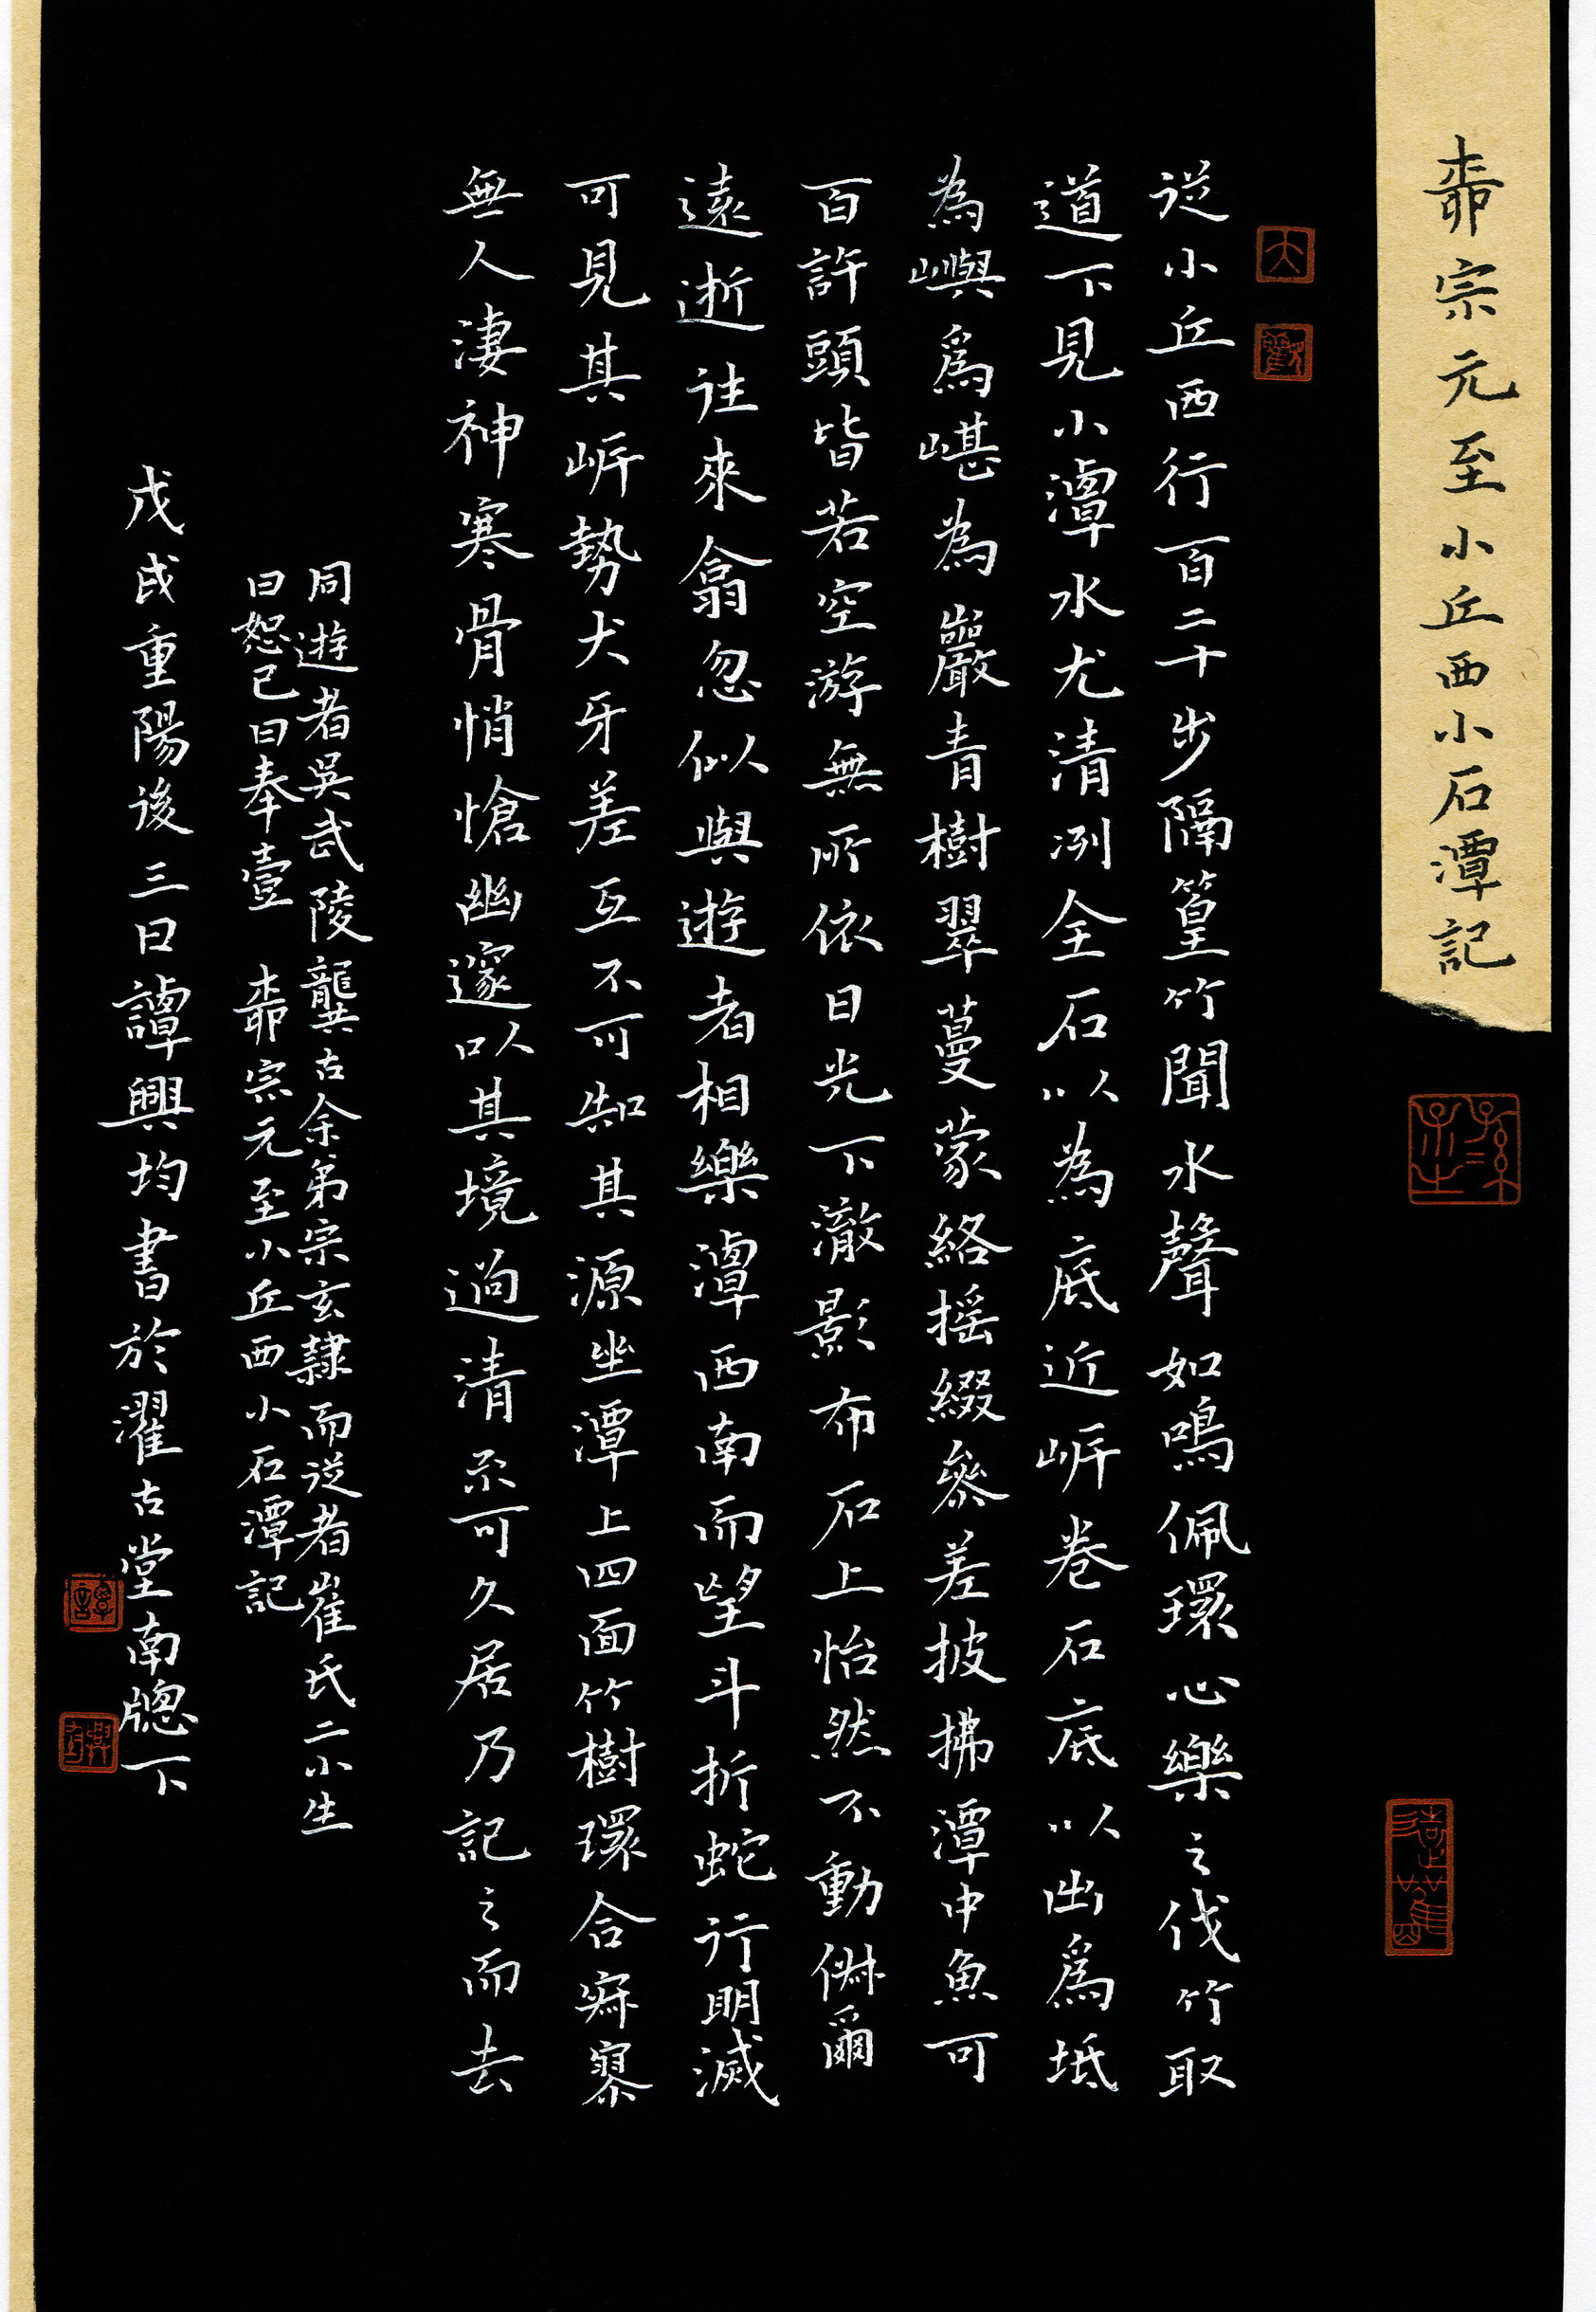 桺宗元至小丘西小石潭記
大
觀
從小丘西行百二十步隔篁竹聞水聲如鳴佩環心樂之伐竹取
道下見小潭水尤清冽全石以為底近岸卷石底以出爲坻
為嶼爲嵁為巖青樹翠蔓蒙絡摇綴參差披拂潭中魚可
百許頭皆若空游無所依日光下澈影布石上怡然不動俶爾
遠逝往來翕忽似與遊者相樂潭西南而望斗折蛇行明滅
可見其岸勢犬牙差互不可知其源坐潭上四面竹樹環合寂寥
無人淒神寒骨悄愴幽邃以其境過清不可久居乃記之而去
同遊者吳武陵龔古余弟宗玄隸而從者崔氏二小生
曰恕己曰奉壹 桺宗元至小丘西小石潭記
戊戌重陽後三日譚興均書於濯古堂南牕下
譚
興均